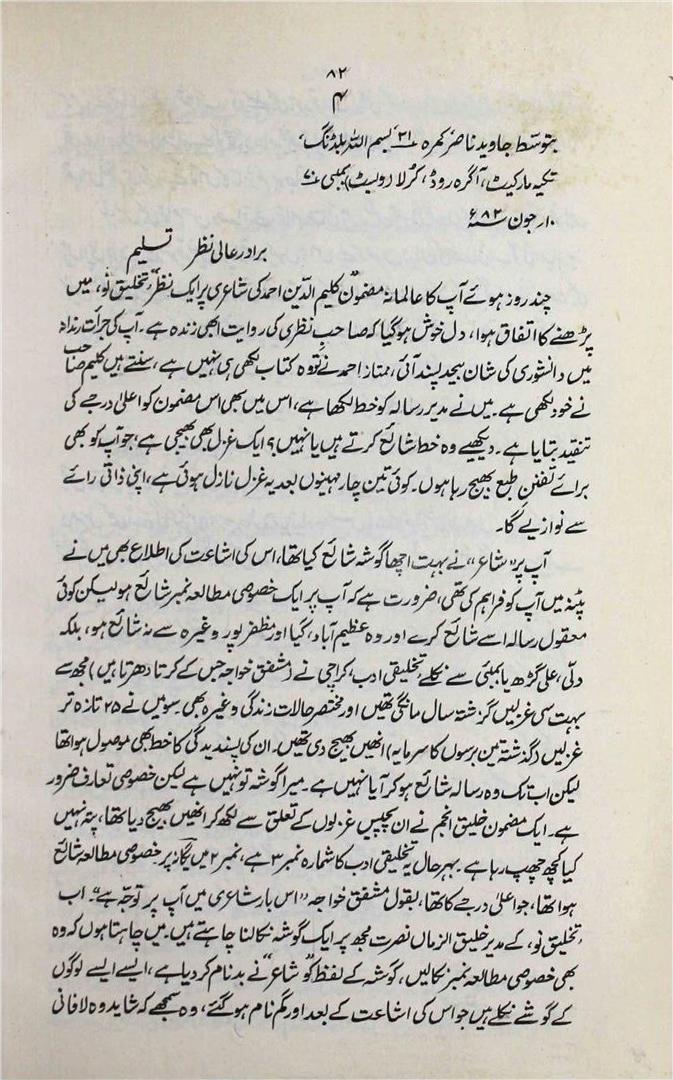 ۸۲
۴
بتوسّط جاوید ناصر کمرہ ۲۱، بسم اللہ بلڈنگ،
تکیہ مارکیٹ، آگرہ روڈ، کرلا (ولیٹ) بمبئی ۷۰
۱۰؍ جون ۸۲ء
برادر عالی نظر تسلیم
چند روز ہوئے آپ کا عالمانہ مضمون "کلیم الدین احمد کی شاعری پر ایک نظر" تخلیق نو، میں
پڑھنے کا اتفاق ہوا، دل خوش ہوگیا کہ صاحبِ نظری کی روایت ابھی زندہ ہے۔ آپ کی جرأت رندانہ
میں دانشوری کی شان بیحد پسند آئی، ممتاز احمد نے تو وہ کتاب لکھی ہی نہیں ہے، سنتے ہیں کلیم صاحب
نے خود لکھی ہے۔ میں نے مدیر رسالہ کو خط لکھا ہے، اس میں بھی اس مضمون کو اعلیٰ درجے کی
تنقید بتایا ہے۔ دیکھیے وہ خط شائع کرتے ہیں یا نہیں؟ ایک غزل بھی بھیجی ہے، جو آپ کو بھی
برائے تفننِ طبع بھیج رہا ہوں۔ کوئی تین چار مہینوں بعد یہ غزل نازل ہوئی ہے، اپنی ذاتی رائے
سے نوازیے گا۔
آپ پر "شاعر" نے بہت اچھا گوشہ شائع کیا تھا، اس کی اشاعت کی اطلاع بھی میں نے
پٹنہ میں آپ کو فراہم کی تھی، ضرورت ہے کہ آپ پر ایک خصوصی مطالعہ نمبر شائع ہو لیکن کوئی
معقول رسالہ اسے شائع کرے اور وہ عظیم آباد، گیا اور مظفر پور وغیرہ سے نہ شائع ہو، بلکہ
دلّی، علی گڑھ یا بمبئی سے نکلے، تخلیقی ادب، کراچی نے (مشفق خواجہ جس کے کرتا دھرتا ہیں) مجھ سے
بہت سی غزلیں گذشتہ سال مانگی تھیں اور مختصر حالات زندگی وغیرہ بھی۔ سو میں نے ۲۵ تازہ تر
غزلیں (گذشتہ تین برسوں کا سرمایہ) انھیں بھیج دی تھیں۔ ان کی پسندیدگی کا خط بھی موصول ہوا تھا
لیکن اب تک وہ رسالہ شائع ہو کر آیا نہیں ہے۔ میرا گوشہ تو نہیں ہے لیکن خصوصی تعارف ضرور
ہے۔ ایک مضمون خلیق انجم نے ان پچیس غزلوں کے تعلق سے لکھ کر انھیں بھیج دیا تھا، پتہ نہیں
کیا کچھ چھپ رہا ہے۔ بہر حال یہ تخلیقی ادب کا شمارہ نمبر ۳ ہے، نمبر ۲ میں یگانہ پر خصوصی مطالعہ شائع
ہوا تھا، جو اعلیٰ درجے کا تھا، بقول مشفق خواجہ "اس بار شاعری میں آپ پر توجّہ ہے"۔ اب
'تخلیق نو' کے مدیر خلیق الزماں نصرت مجھ پر ایک گوشہ نکالنا چاہتے ہیں۔ میں چاہتا ہوں کہ وہ
بھی خصوصی مطالعہ نمبر نکالیں، گوشہ کے لفظ کو "شاعر" نے بدنام کر دیا ہے، ایسے ایسے لوگوں
کے گوشے نکلے ہیں جو اس کی اشاعت کے بعد اور گم نام ہوگئے، وہ سمجھے کہ شاید وہ لافانی